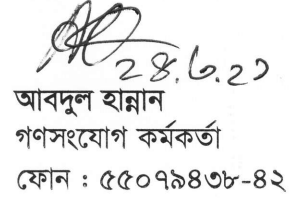 ২৪.৬.২১
আবদুল হান্নান
গণসংযোগ কর্মকর্তা
ফোন : ৫৫০৭৯৪৩৮-৪২